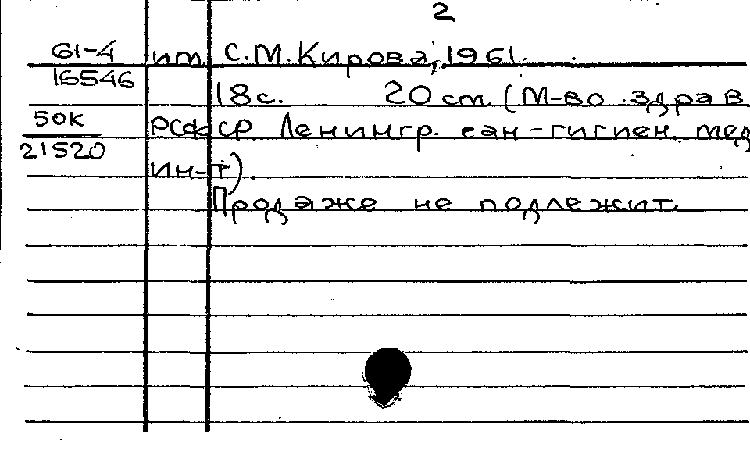 2
61-4 им. С.М.Кирова, 1961.
16546
18с. 20 см. (М-во здрав
50К
РСФСР Ленингр. сан-гигиен. мед
21520
ин-т).
Продаже не подлежит.